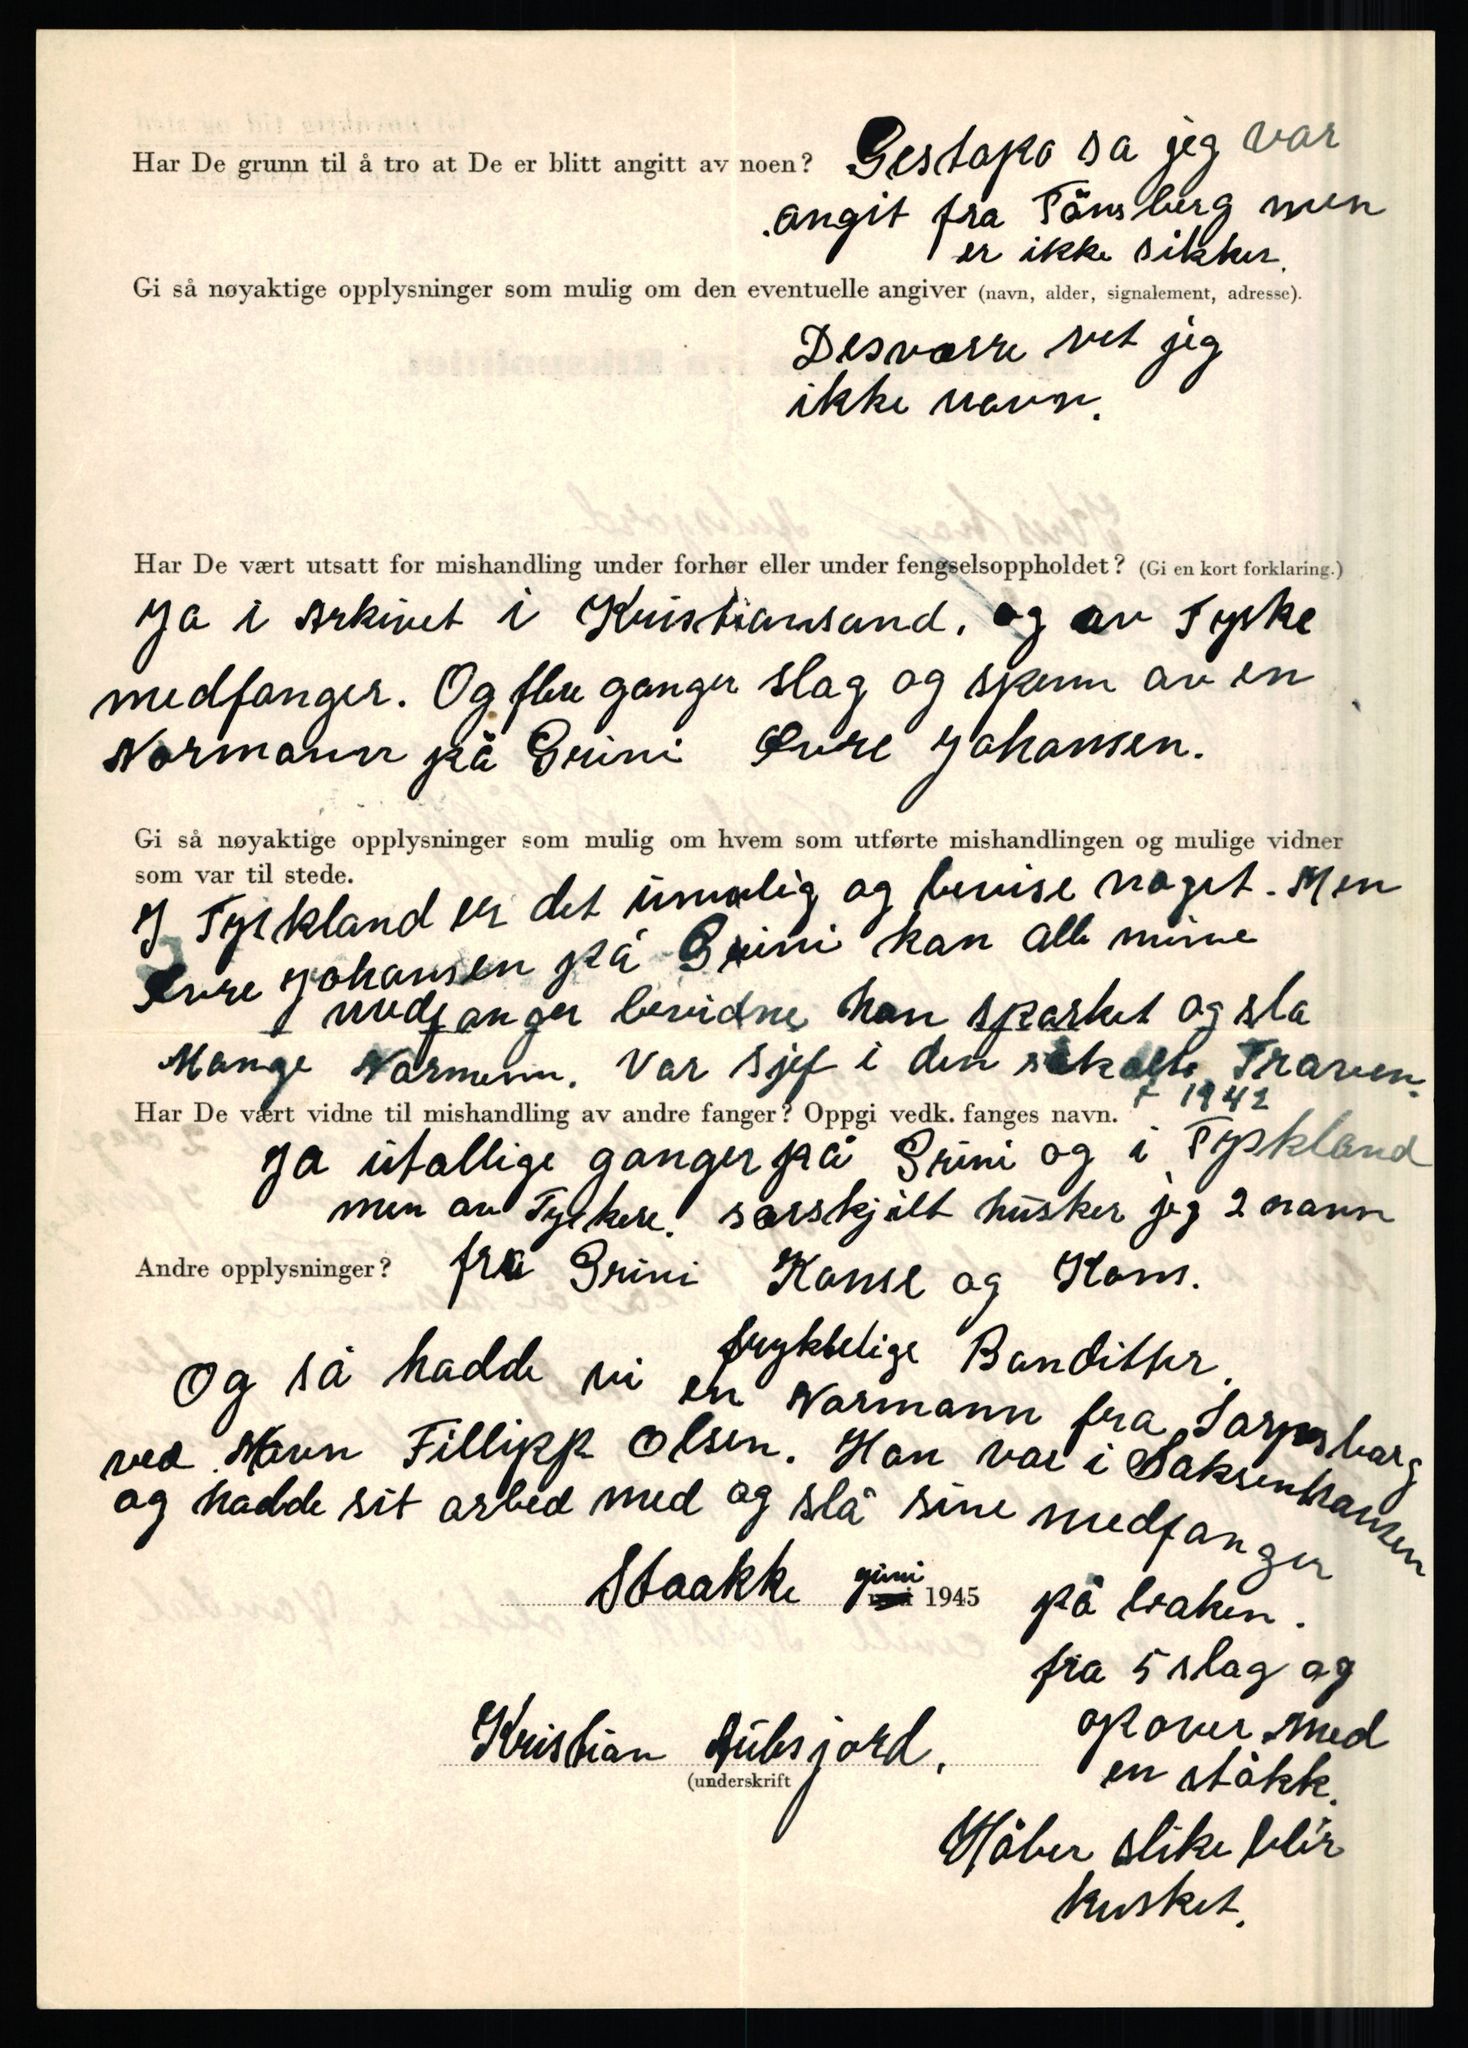 Har De grunn til å tro at De er blitt angitt av noen? Gestapo sa jeg var
angit fra Tönsberg men
er ikke sikker.
Gi så nøyaktige opplysninger som mulig om den eventuelle angiver (navn, alder, signalement, adresse).
Desværre vet jeg
ikke navn.
Har De vært utsatt for mishandling under forhør eller under fengselsoppholdet? (Gi en kort forklaring.)
Ja i Arkivet i Kristiansand. og av Tyske
medfanger. Og flere ganger slag og spenn av en
Normann på Grini Øvre Johansen.
Gi så nøyaktige opplysninger som mulig om hvem som utførte mishandlingen og mulige vidner
som var til stede.
I Tyskland er det umulig og bevise noget. Men
Øvre Johansen på Grini kan alle mine
medfanger bevidne han sparket og slo
Mange Normenn. Var sjef i den såkalte Traven.
Har De vært vidne til mishandling av andre fanger? Oppgi vedk. fanges navn. 1942
Ja utallige ganger på Grini og i Tyskland
men av Tyskere. særskjilt husker jeg 2 navn
Andre opplysninger? fra Grini Kunse og Kons.
fryktelige Banditter.
Og så hadde vi en Normann fra Sarpsborg
ved Navn Fillipp Olsen. Han var i Saksenhausen
og hadde sit arbed med og slå sine medfanger
Stokke juni 1945 på baken.
fra 5 slag og
opover med
Kristian Aulesjord.
(underskrift
en stokk.
Håber slike blir
husket.